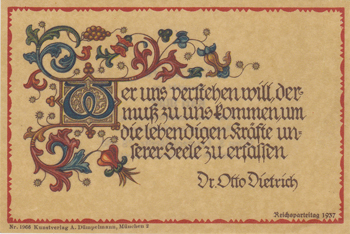 Wer uns verstehen will, der-
muß zu uns kommen, um
die lebendigen Kräfte un-
serer Seele zu erfassen
Dr. Otto Dietrich
Reichsparteitag 1937
Nr. 1066 Kunstverlag A. Düngelmann, München 2